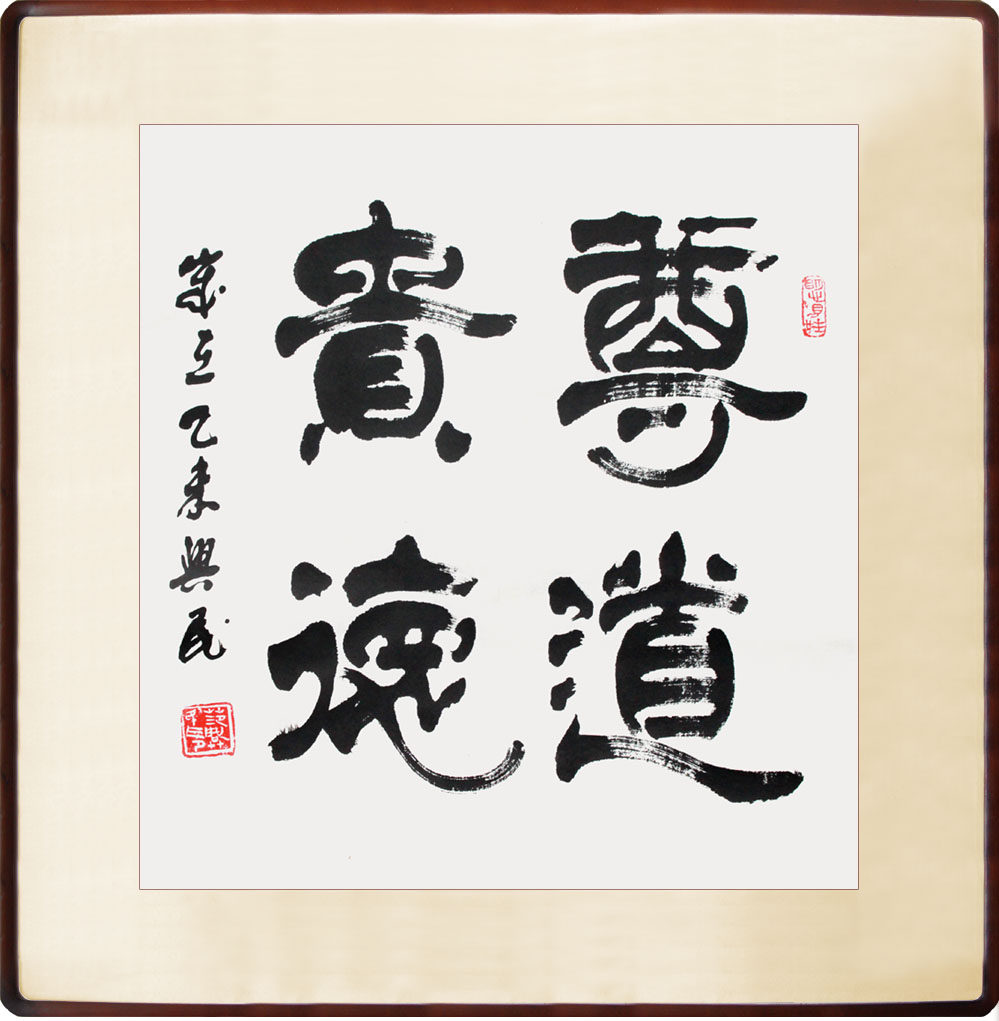 尊道
貴德
歲在乙未興民